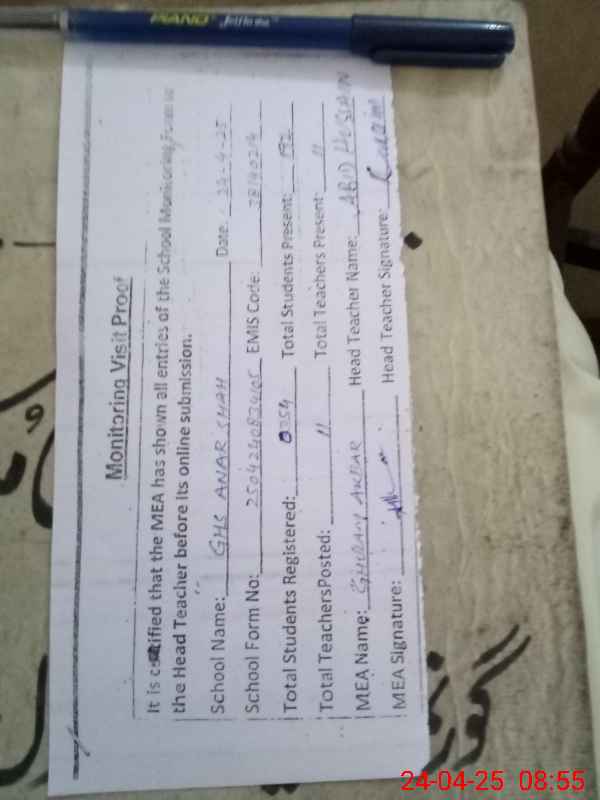 PIANO
Monitoring Visit Proof
It is certified that the MEA has shown all entries of the School Monitoring Form to
the Head Teacher before its online submission.
School Name: GHS ANAR SHAH Date: 24-4-25
School Form No: EMIS Code:
Total Students Registered: 0254 Total Students Present: 192
Total TeachersPosted: 11 Total Teachers Present: 11
MEA Name: GHULAM AKBAR Head Teacher Name: ABID HUSSAIN
MEA Signature: Head Teacher Signature:
24-04-25 08:55